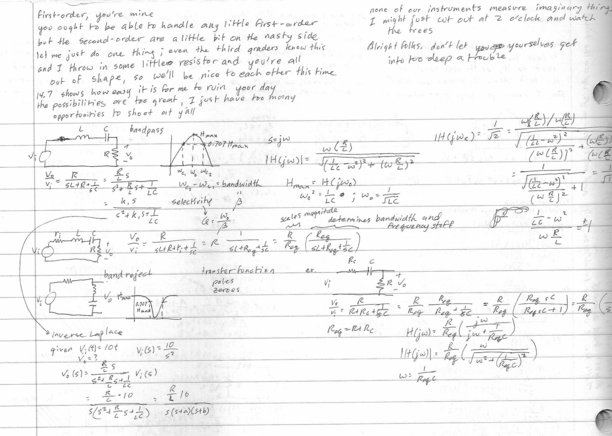 first-order, you're mine
you ought to be able to handle any little first-order
but the second-order are a little bit on the nasty side
let me just do one thing; even the third graders know this
and I throw in some little resistor and you're all
out of shape, so we'll be nice to each other this time
14.7 shows how easy it is for me to ruin your day
the possibilities are too great, I just have too many
opportunities to shoot at y'all
none of our instruments measure imaginary thing
I might just cut out at 2 o'clock and watch
the trees
Alright folks, don't let yourselves get
into too deep a trouble
bandpass
L C
Vi R Vo
Vo/Vi = R/(sL+R+1/sC) = (R/L s)/(s²+R/L s+1/LC)
= k, s / (s²+k, s+1/LC)
Hmax
0.707 Hmax
ωc1 ω0 ωc2
ωc2 - ωc1 = bandwidth
β
selectivity
Q = ω0/β
s=jω
|H(jω)| = ω(R/L) / √((1/LC - ω²)² + (ω R/L)²)
Hmax = H(jω0)
ω0² = 1/LC ; ω0 = 1/√LC
|H(jωc)| = 1/√2 =
1/LC - ω²
ω R/L
= ±1
scales magnitude
determines bandwidth and
frequency stuff
ri L C
Vi R Vo
Vo/Vi = R/(sL+R+ri+1/sC) = R 1/(sL+Req+1/sC) = R/Req (Req/(sL+Req+1/sC))
bandreject
Vi Vo
Hmax
0.707 Hmax
transfer function
poles
zeroes
ex.
Rc C
Vi R Vo
Vo/Vi = R/(R+Rc+1/sC) = R/Req Req/(Req+1/sC) = R/Req (Req sC/(Req sC+1)) = R/Req
Req = R+Rc
H(jω) = R/Req (jω/(jω+1/ReqC))
|H(jω)| = R/Req (ω/√(ω²+(1/ReqC)²))
ω = 1/ReqC
inverse Laplace
given Vi(t) = 10t Vi(s) = 10/s²
Vo = ?
Vo(s) = (R/L s)/(s²+R/L s+1/LC) Vi(s)
= (R/L · 10)/(s(s²+R/L s+1/LC)) = (R/L 10)/(s(s+a)(s+b))